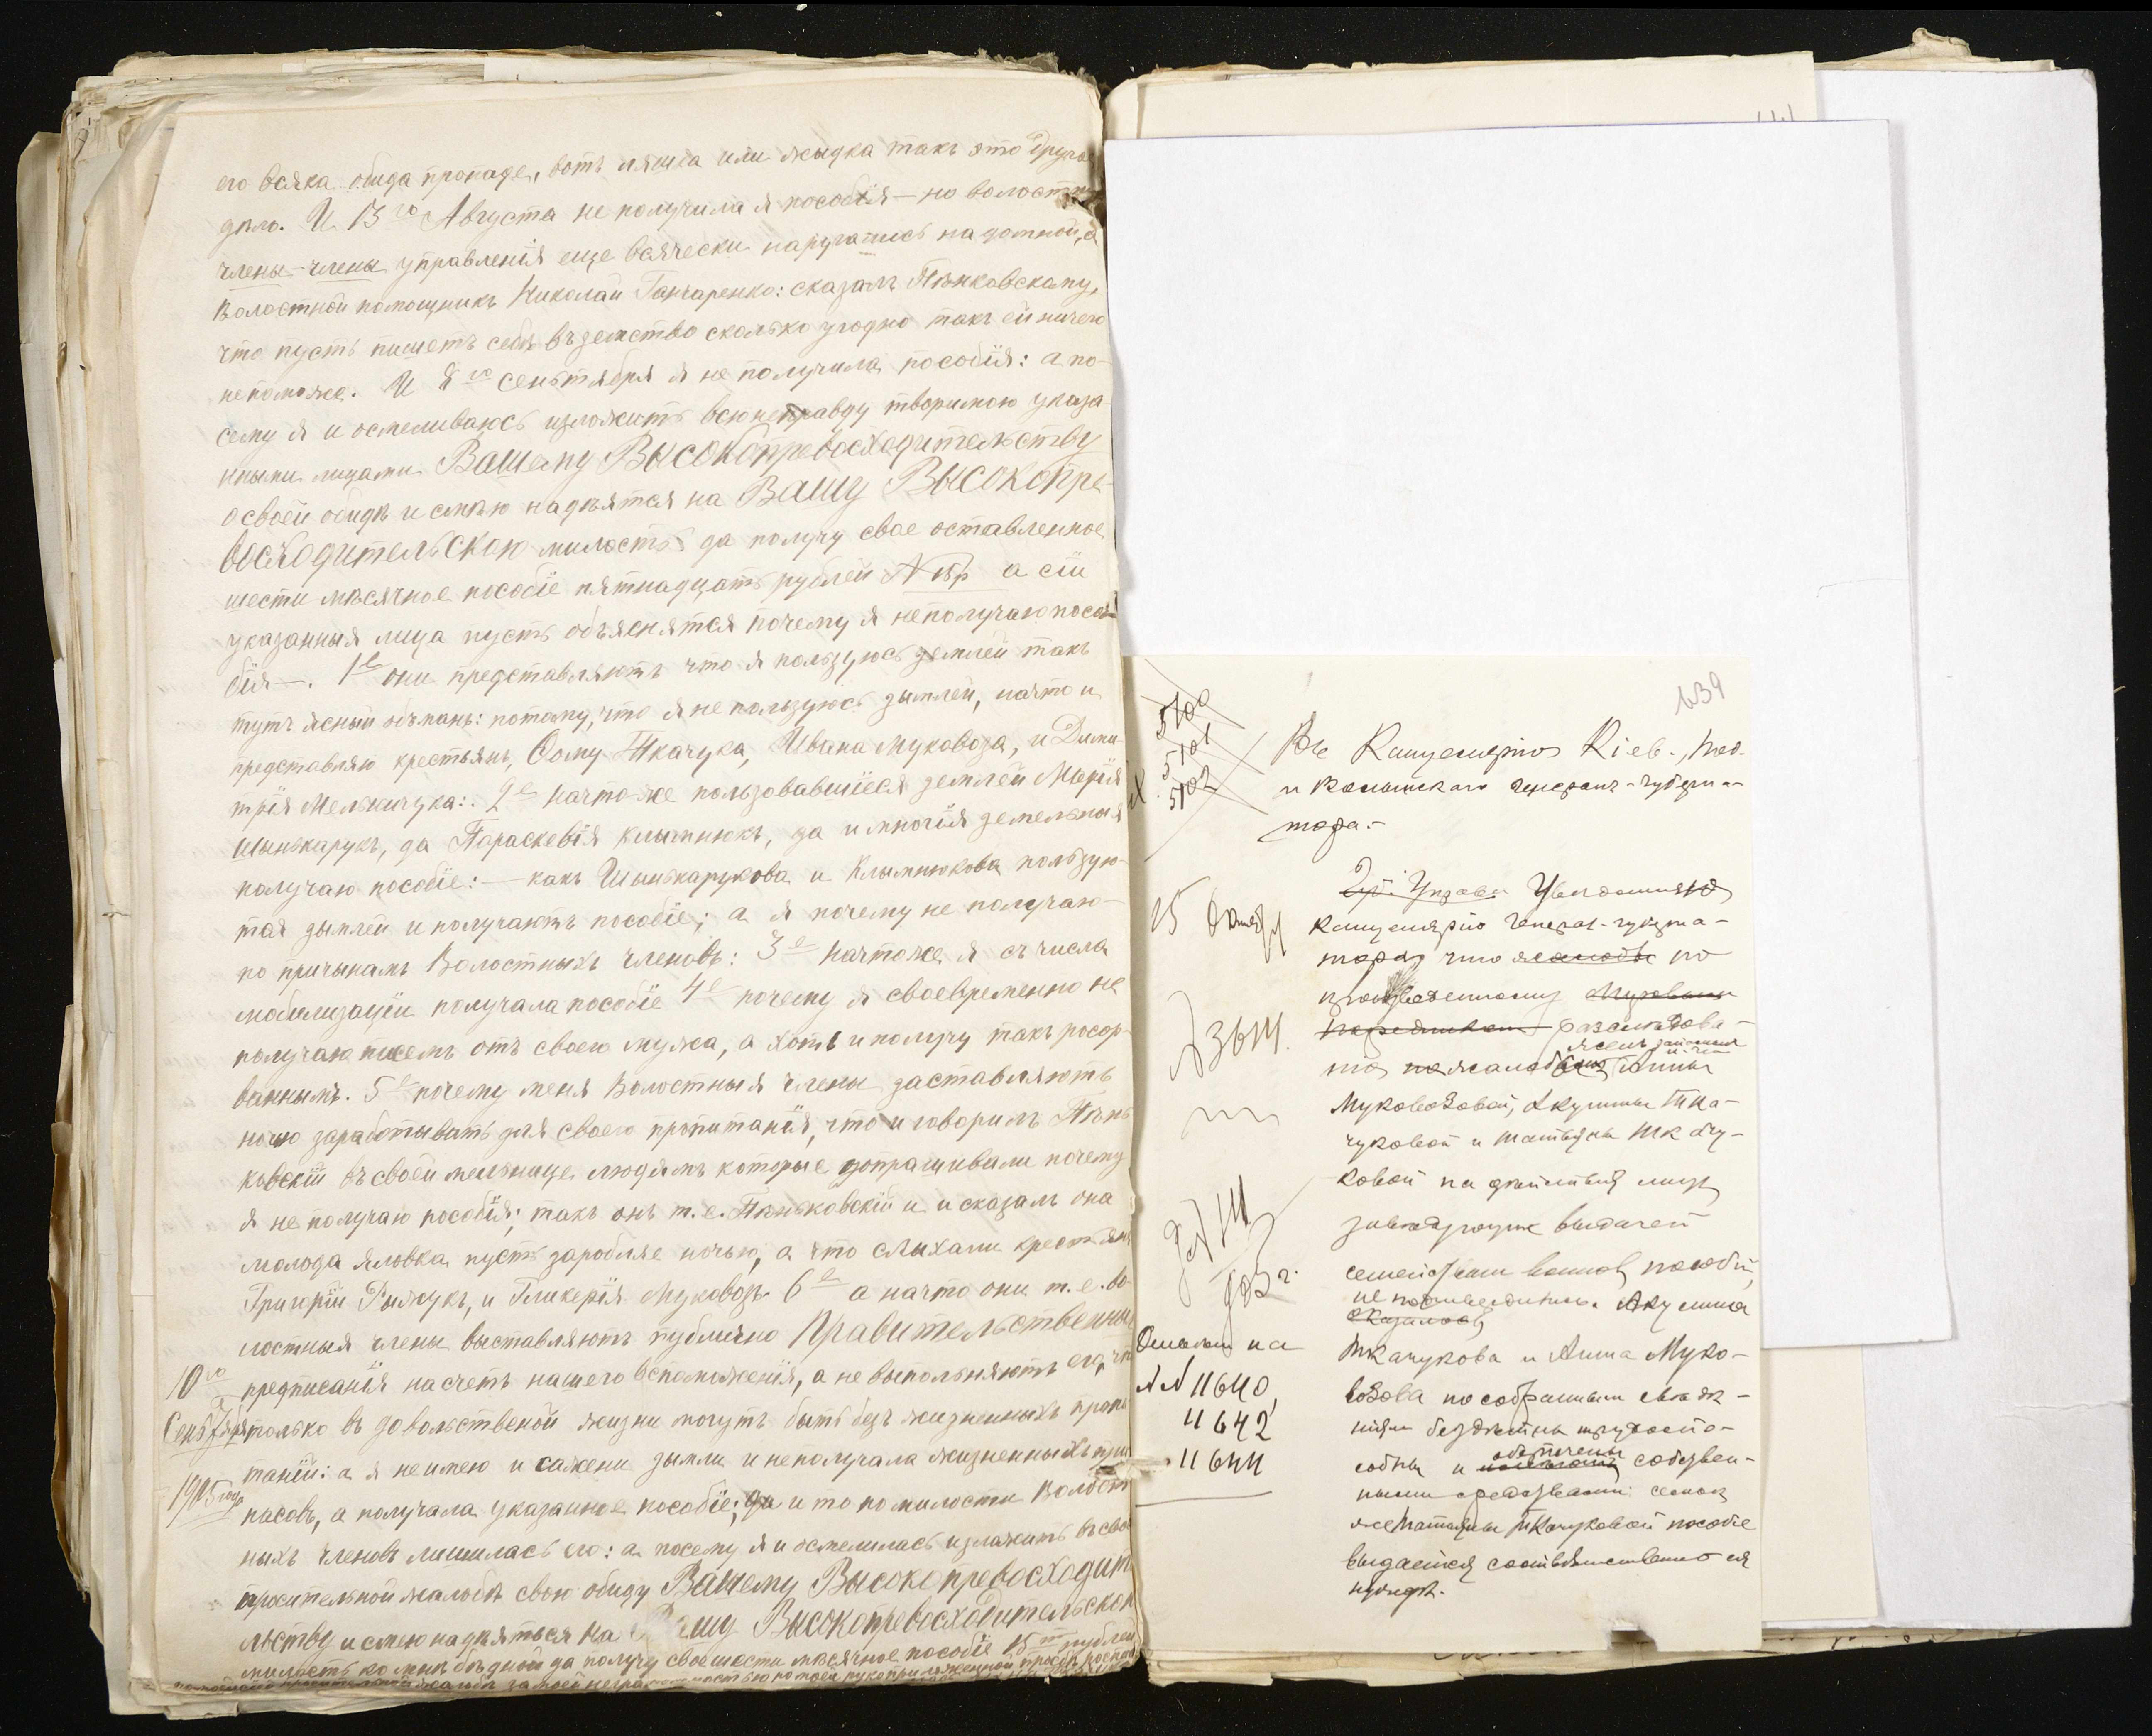 его всяка обида пропаде, вотъ ляшка или жыдка такъ это друго
дѣло. И 13го Августа не получила я пособія — но волостн
члены-члены управленія еще всячески наругались надомной, а
Волостной помощникъ Николай Гончаренко: сказалъ Пѣнковскому,
что пусть пишетъ себѣ въ земство сколько угодно такъ ей ничего
непоможе. И 8го сеньтября я не получила пособія: а по-
сему я и осмеливаюсь изложить всю неправду творимою указа-
нными лицами Вашему Высокопревосходительству
о своей обидѣ и смѣю надѣятся на Вашу Высокопре-
восходительскою милость да получу свое оставленное
шести мѣсячное пособіе пятнадцать рублей 15р а сіи
указанныя лица пусть объяснятся почему я неполучаю посо-
бія —. 1е они представляютъ что я пользуюсь землей такъ
тутъ ясный обманъ: потому, что я не пользуюсь зымлей, начто и
представляю крестьянъ, Фому Ткачука, Ивана Муковоза, и Дими-
трія Мельничука:. 2е начто-же пользовавшіеся землей Марія
Шынькарукъ, да Параскевія Клымнюкъ, да и многія земельныя
получаю пособіе: — какъ Шинькарукова и Клымнюкова пользую-
тся зымлей и получаютъ пособіе; а я почему не получаю-
по причынамъ Волостныхъ членовъ: 3е начтоже я съ числа
мобилизаціи получала пособіе 4е почему я своевременно не
получаю писемъ отъ своего мужа, а хоть и получу такъ розор-
ваннымъ. 5е почему меня Волостныя члены заставляютъ
ночю заработывать для своего пропитанія, что и говорилъ Пѣнь
ковскій въ своей мельнице людямъ которые допрашивали почему
я не получаю пособія; такъ онъ т.е. Пѣньковскій и и сказалъ она
молода яловка пусть заробляе ночью, а что слыхали крестьяне
Григорій Рыжукъ, и Гликерія Муковозъ. 6е а начто они т.е. во-
лостныя члены выставляютъ публично Правительственны
10го предписанія насчетъ нашего вспоможенія, а не выполъняютъ его, что
Сеньтября только въ довольственой жизни могутъ быть безъ жизненныхъ пропи
таній: а я неимею и сажени зымли и неполучала жизненныхъ при
1905 года пасовъ, а получала указанное пособіе; да и то по милости Волост
ныхъ членовъ лишилась его: а посему я и осмелилась изложить въ свое
просительной жалобѣ свою обиду Вашему Высокопревосходит
льству и смею надѣяться на Вашу Высокопревосходительскою
милость ко мнѣ бѣдной да получу свое шести мѣсячное пособіе 15ть рублей
639
5100
5101
5102
Въ Канцелярію Кіев., Под.
и Волынскаго Генералъ-Губерна-
тора.
15
Канцелярію Генерал-губерна-
тора, что жалобы по
произведенному
разслѣдова-
нію жалобы Анны
Муковозовой, Акулины Тка-
чуковой и Татьяны Ткачу-
ковой на дѣйствія лицъ
завѣдующихъ выдачей
семействам воиновъ пособій,
не подтвердились. Акулина
оказалось
Ткачукова и Анна Муко-
возова по собраннымъ свѣдѣ-
ніям бездѣтны трудоспо-
собны и обезпечены собствен-
ными средствами семьѣ
же Татьяны Ткачуковой пособіе
выдается соотвѣтственно ея
нуждѣ.
3614.
на
№№ 11640,
11642
11644